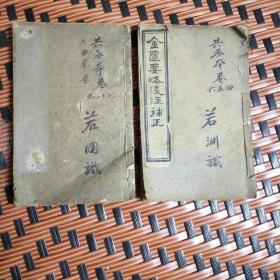 金匱要略淺注補正
共叁本卷
四五六
若淵識
共叁本卷
七八九
若困識